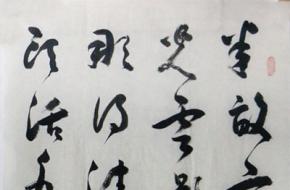 半畝方
光雲影
那得清
頭活水